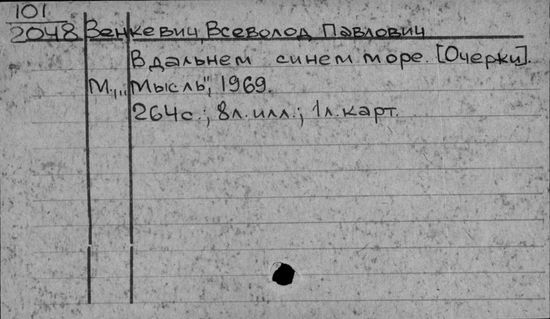 101
2048 Зенкевич, Всеволод Павлович
В дальнем синем море. [Очерки].
М., „Мысль", 1969.
264 с.; 8 л. илл.; 1 л. карт.